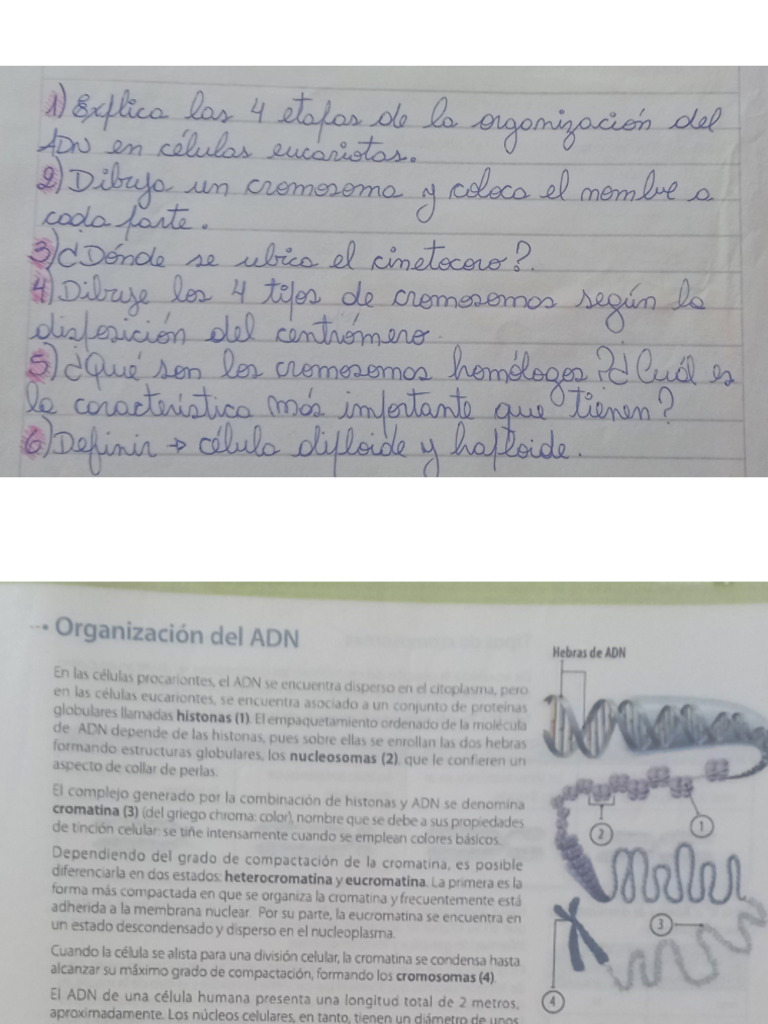 1) Explica las 4 etapas de la organización del
ADN en células eucariotas.
2) Dibuja un cromosoma y coloca el nombre a
cada parte.
3) ¿Dónde se ubica el cinetocoro?.
4) Dibuje los 4 tipos de cromosomas según la
disposición del centrómero.
5) ¿Qué son los cromosomas homólogos? ¿Cuál es
la característica más importante que tienen?
6) Definir → célula diploide y haploide.
Organización del ADN
Hebras de ADN
En las células procariontes, el ADN se encuentra disperso en el citoplasma, pero
en las células eucariontes, se encuentra asociado a un conjunto de proteínas
globulares llamadas histonas (1). El empaquetamiento ordenado de la molécula
de ADN depende de las histonas, pues sobre ellas se enrollan las dos hebras
formando estructuras globulares, los nucleosomas (2), que le confieren un
aspecto de collar de perlas.
El complejo generado por la combinación de histonas y ADN se denomina
cromatina (3) (del griego chroma: color), nombre que se debe a sus propiedades
de tinción celular: se tiñe intensamente cuando se emplean colores básicos.
Dependiendo del grado de compactación de la cromatina, es posible
diferenciarla en dos estados: heterocromatina y eucromatina. La primera es la
forma más compactada en que se organiza la cromatina y frecuentemente está
adherida a la membrana nuclear. Por su parte, la eucromatina se encuentra en
un estado descondensado y disperso en el nucleoplasma.
Cuando la célula se alista para una división celular, la cromatina se condensa hasta
alcanzar su máximo grado de compactación, formando los cromosomas (4).
El ADN de una célula humana presenta una longitud total de 2 metros,
aproximadamente. Los núcleos celulares, en tanto, tienen un diámetro de unos
1
2
3
4